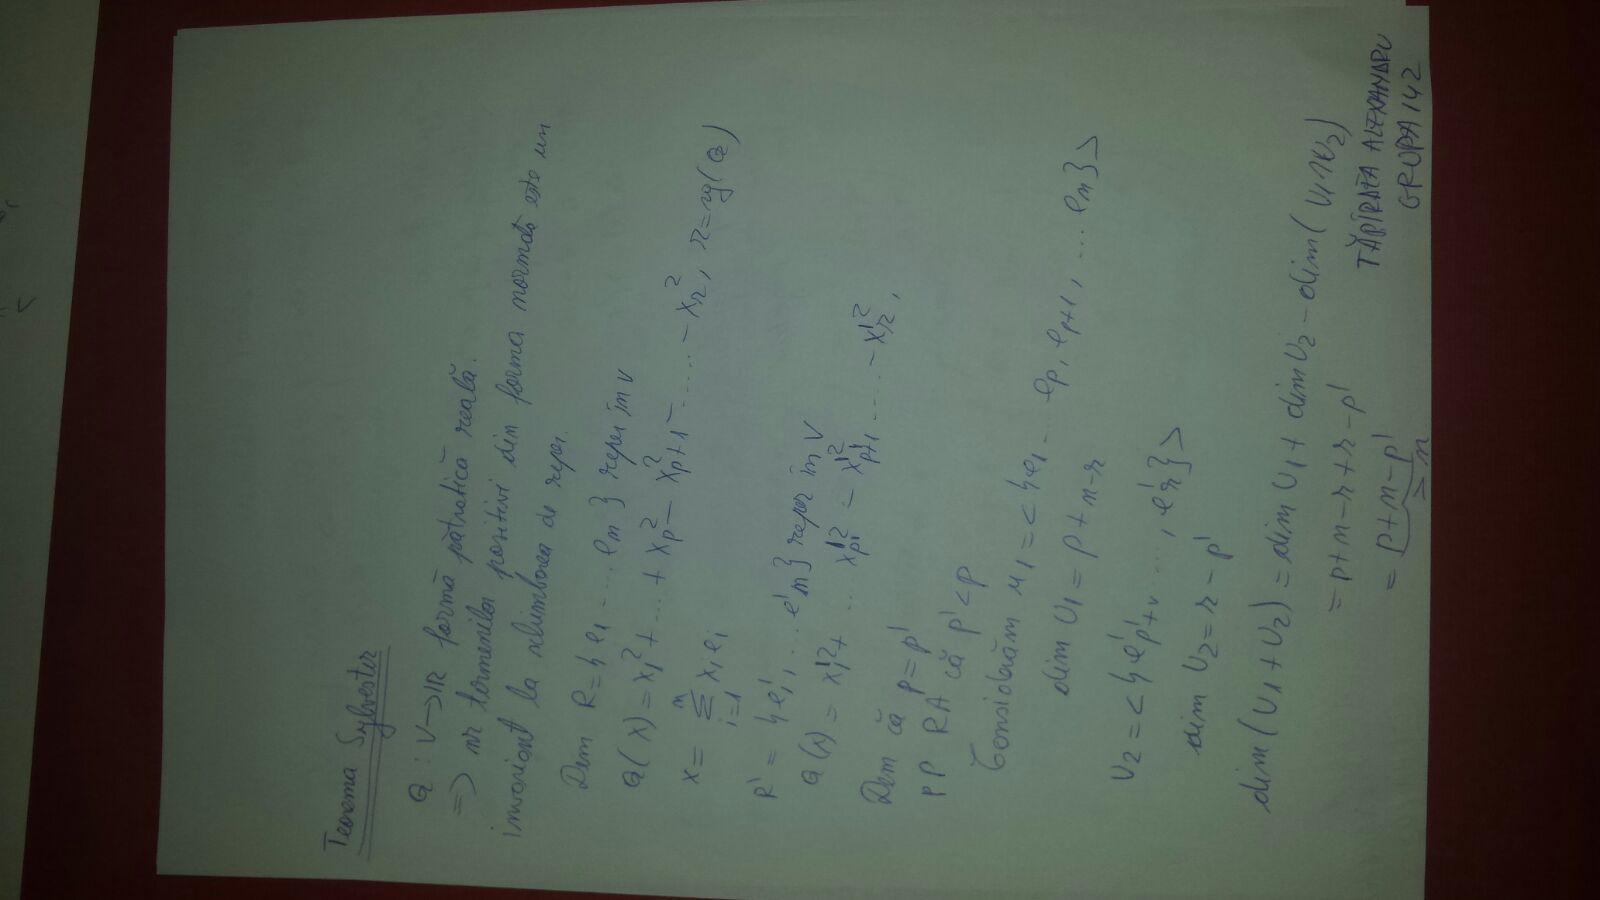 Teorema Sylvester
Q : V → IR formă pătratică reală.
=> nr termenilor pozitivi din forma normală este un
invariant la schimbarea de reper.
Dem R = {e1 .... em} reper în V
Q(x) = x1² + ... + xp² - xp+1² - ..... - xr², r = rg(Q)
x = Σ(i=1, n) xi ei
R' = {e'1, ... e'm} reper în V
Q(x) = x'1² + .. x'p'² - x'p'+1² ..... - x'r²,
Dem că p = p'
PP RA că p' < p
Considerăm U1 = <{e1 ... ep, er+1, ... em}>
dim U1 = p + m - r
U2 = <{e'p'+1, ..., e'r}>
dim U2 = r - p'
dim(U1 + U2) = dim U1 + dim U2 - dim(U1 ∩ U2)
= p + m - r + r - p'
= p + m - p'
> n
ȚĂPÎRDEA ALEXANDRU
GRUPA 142